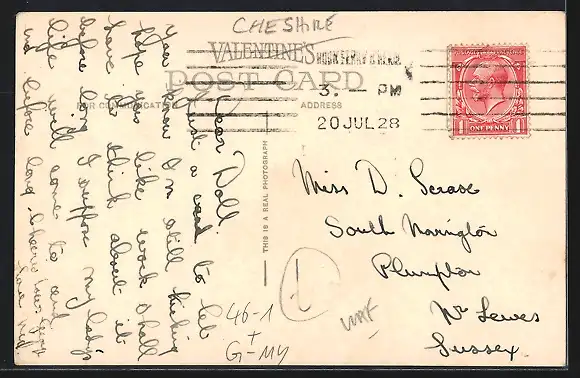 CHESHIRE
VALENTINE'S
POST CARD
FOR COMMUNICATION
ADDRESS
3. — PM
20 JUL 28
1 ONE PENNY 1
THIS IS A REAL PHOTOGRAPH
Dear Doll.
Just a card to let
you know I'm still kicking
hope you like work shall
have to think about it
before long I suppose my lady's
life will come to and
end before long. Cheerio
Miss D. Scrase
South Norington
Plumpton
Nr Lewes
Sussex
1
46-1
+
G-MY